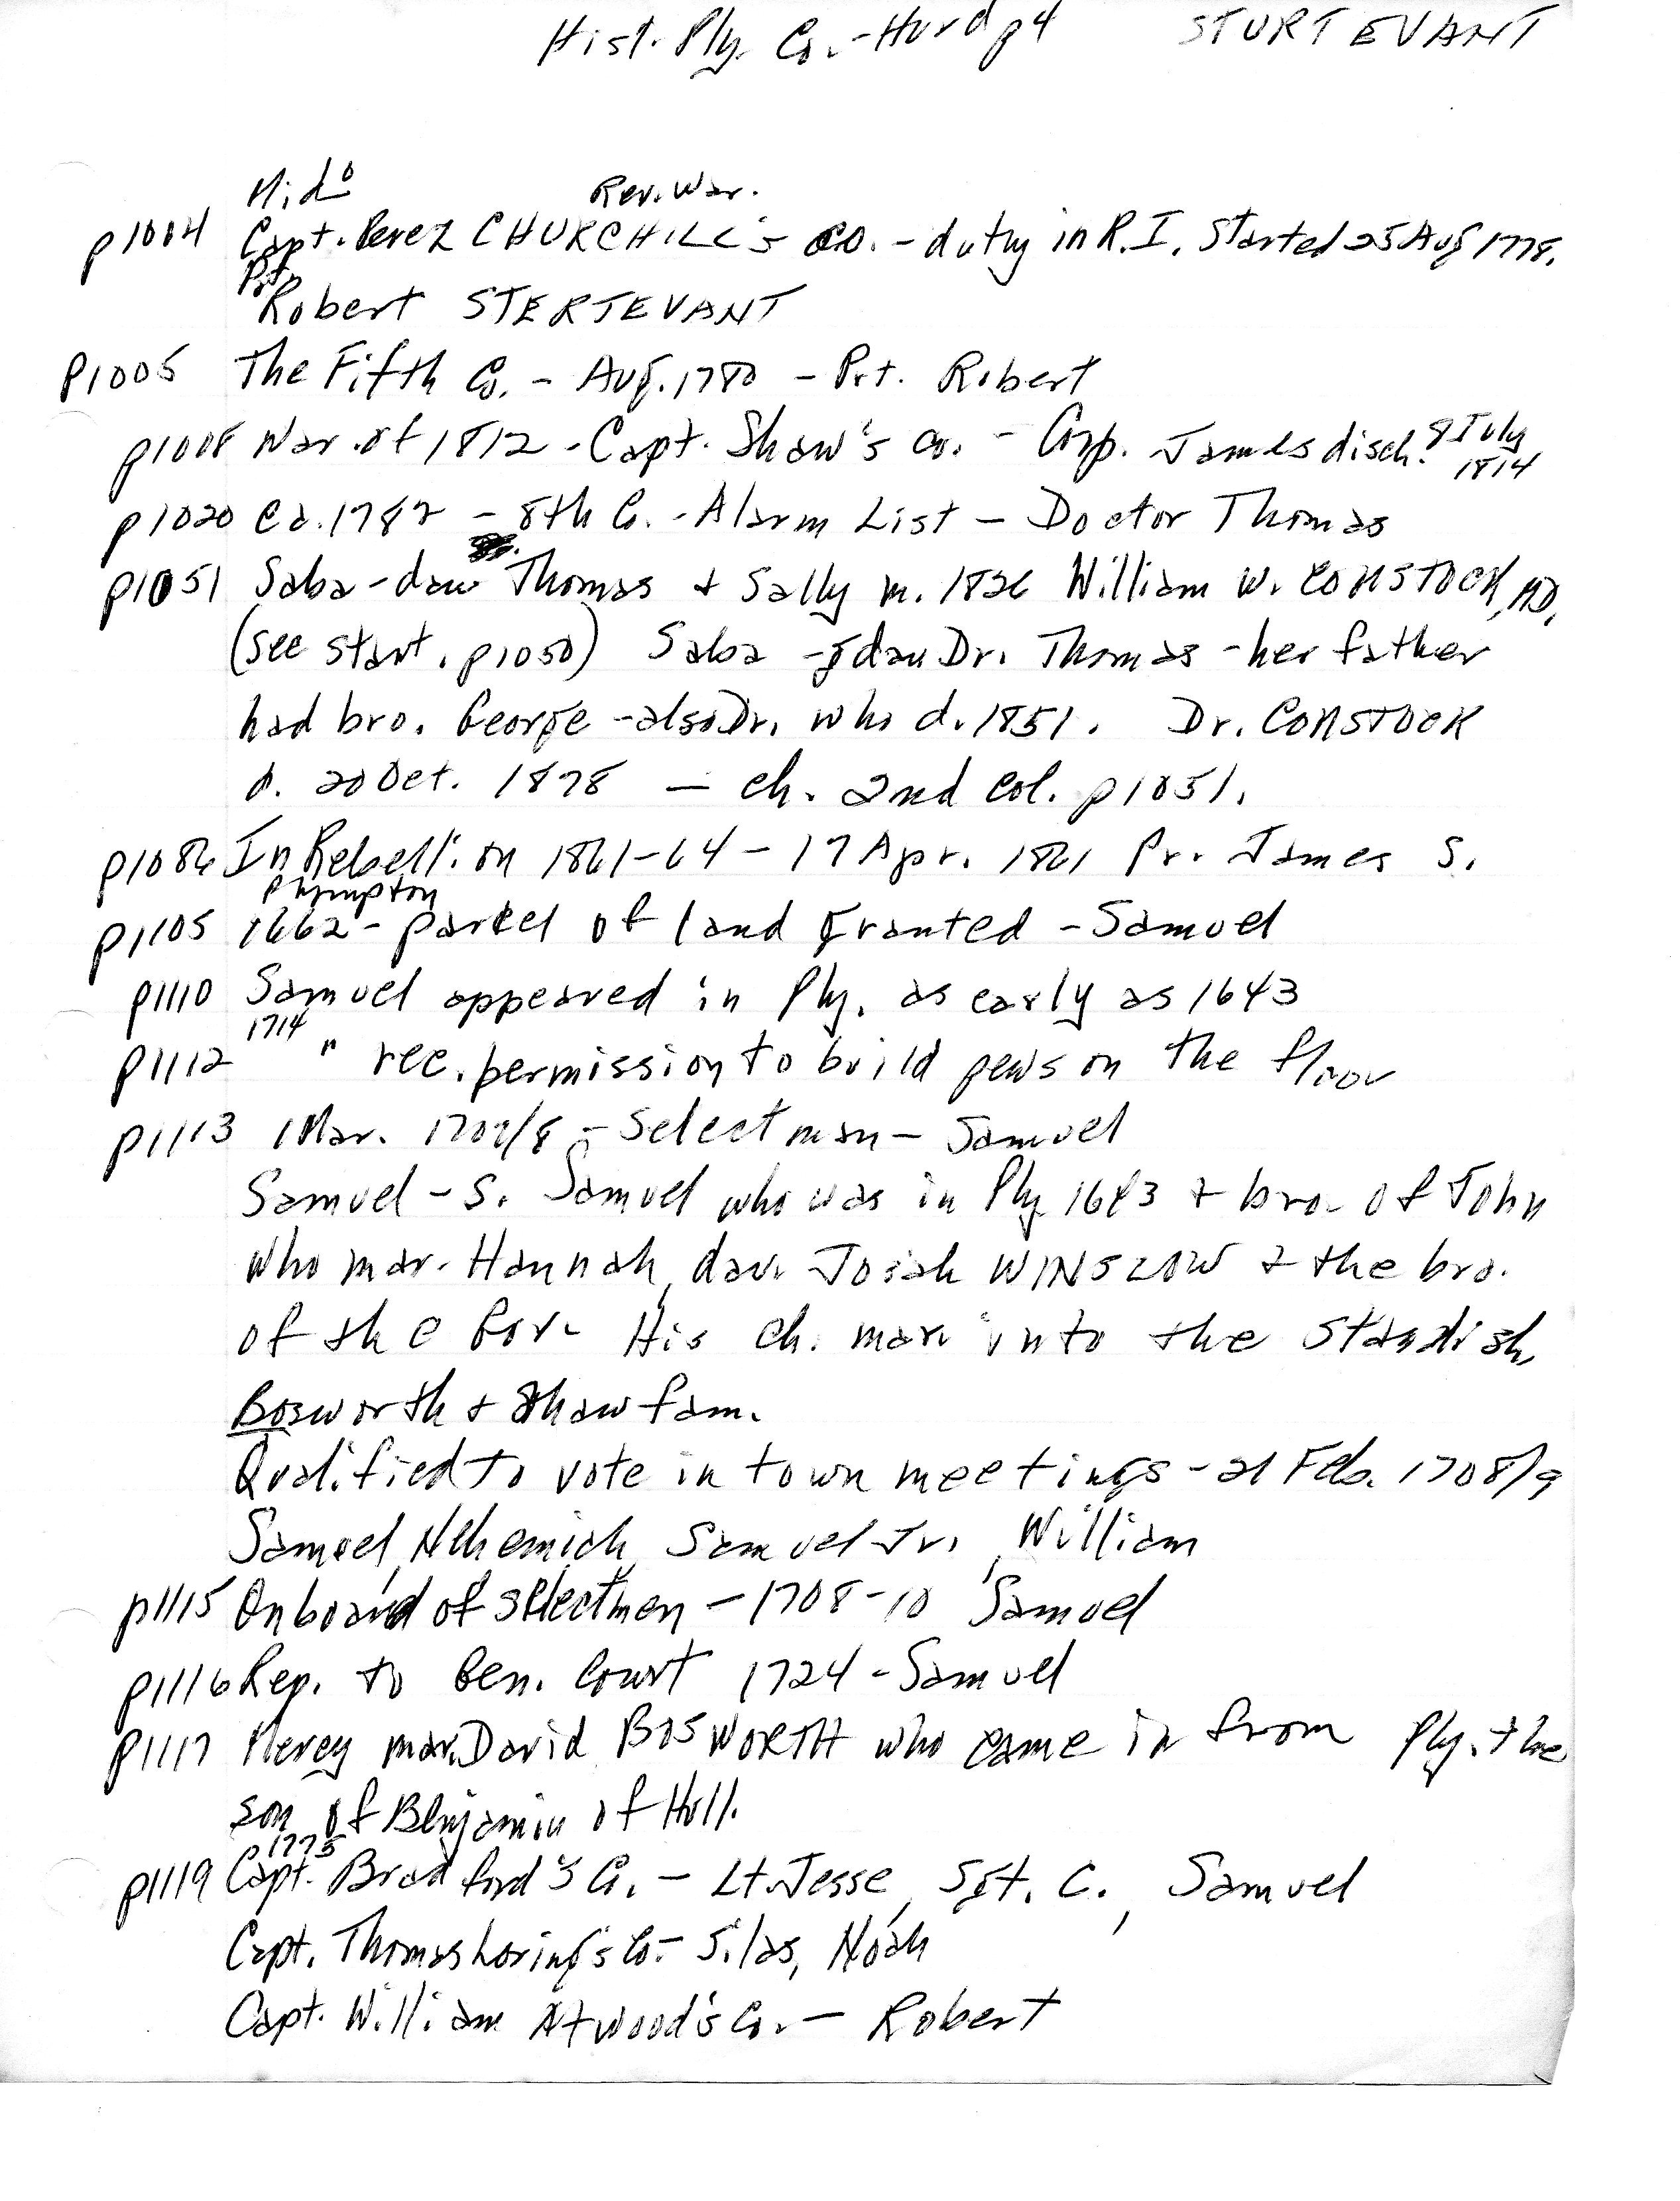 Hist. Ply. Co. - Hurd p4 STURTEVANT
Mid° Rev. War.
p1004 Capt. Perez CHURCHILL's Co. - duty in R.I. Started 25 Aug 1778.
Pvt
Robert STERTEVANT
p1005 The Fifth Co. - Aug. 1780 - Pvt. Robert
p1008 War of 1812 - Capt. Shaw's Co. - Corp. James disch. 8 July 1814
p1020 ca. 1782 - 8th Co. - Alarm List - Doctor Thomas
p1051 Saba - dau Thomas + Sally m. 1826 William W. COMSTOCK, MD.
(see start. p1050) Saba - gdau Dr. Thomas - her father
had bro. George - also Dr. who d. 1851. Dr. COMSTOCK
d. 20 Oct. 1878 - ch. 2nd col. p1051.
p1086 In Rebellion 1861-64 - 17 Apr. 1861 Pr. James S.
Plympton
p1105 1662 - parcel of land granted - Samuel
p1110 Samuel appeared in Ply. as early as 1643
p1112 1714 " rec. permission to build pews on the floor
p1113 1 Mar. 1707/8 - Selectman - Samuel
Samuel - S. Samuel who was in Ply 1643 + bro. of John
who mar. Hannah, dau. Josiah WINSLOW + the bro.
of the Gov. His ch. mar. into the Standish,
Bosworth + Shaw fam.
Qualified to vote in town meetings - 21 Feb. 1708/9
Samuel, Nehemiah, Samuel Jr., William
p1115 On board of selectmen - 1708-10 Samuel
p1116 Rep. to Gen. Court 1724 - Samuel
p1117 Mercy mar. David BOSWORTH who came in from Ply. the
son of Benjamin of Hull.
1775
p1119 Capt. Bradford's Co. - Lt. Jesse, Sgt. C., Samuel
Capt. Thomas Loring's Co. - Silas, Noah
Capt. William Atwood's Co. - Robert